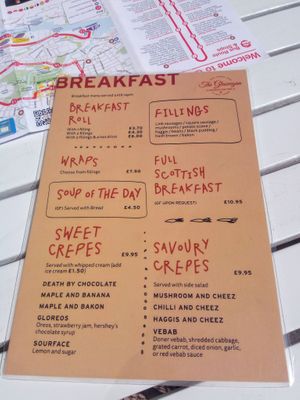 BREAKFAST
Breakfast menu served until 12pm
BREAKFAST
ROLL
With 1 filling £3.70
With 2 fillings
With 3 fillings
FILLINGS
Link sausages / square sausage /
mushrooms / potato scone /
haggis / beans / black pudding /
hash brown / bakon
WRAPS
Choose from fillings £7.50
SOUP OF THE DAY
(GF) Served with Bread £4.50
FULL
SCOTTISH
BREAKFAST
(GF UPON REQUEST) £10.95
SWEET
CREPES £9.95
Served with whipped cream (add
ice cream £1.50)
DEATH BY CHOCOLATE
MAPLE AND BANANA
MAPLE AND BAKON
GLOREOS
Oreos, strawberry jam, hershey's
chocolate syrup
SOURFACE
Lemon and sugar
SAVOURY
CREPES
£9.95
Served with side salad
MUSHROOM AND CHEEZ
CHILLI AND CHEEZ
HAGGIS AND CHEEZ
VEBAB
Doner vebab, shredded cabbage,
grated carrot, diced onion, garlic,
or red vebab sauce